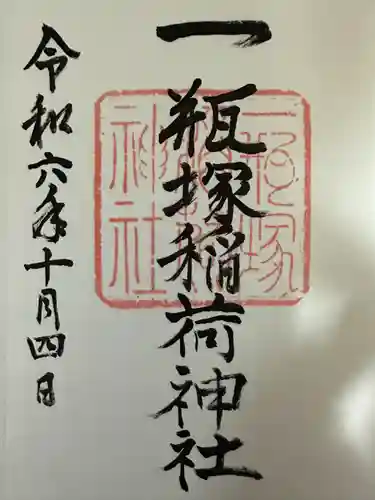 一瓶塚稲荷神社
令和六年十月四日
一瓶塚
稲荷
神社